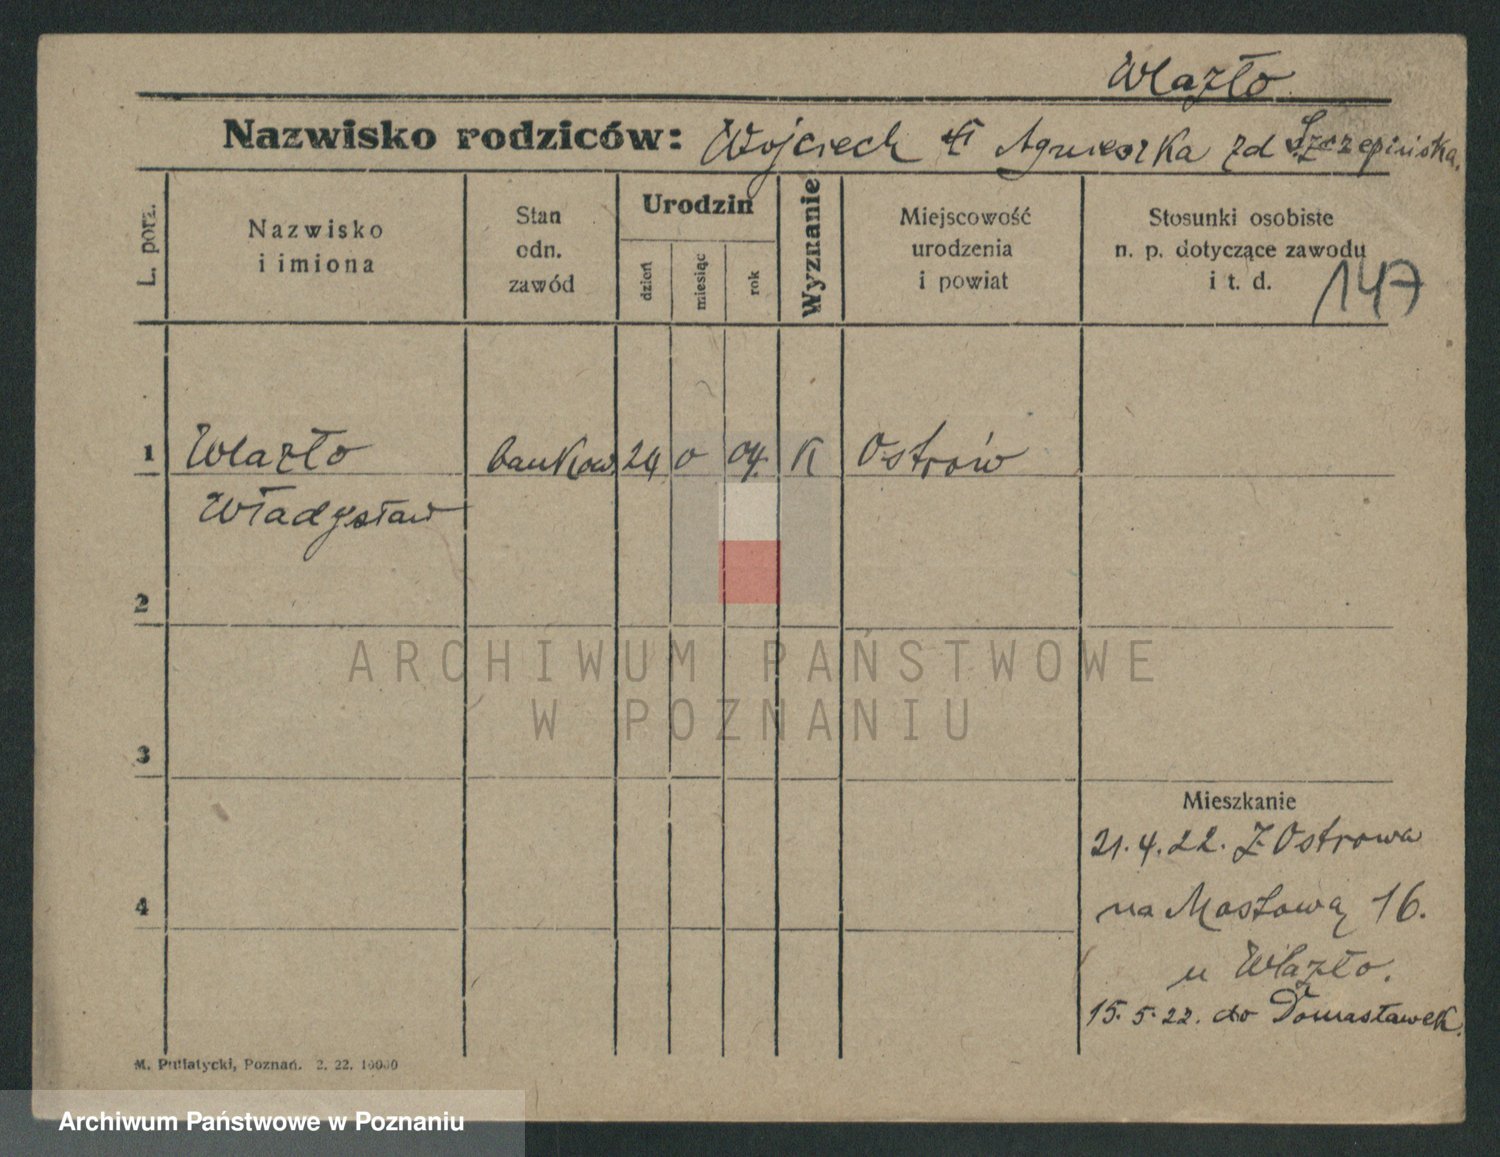 Wlazło
Nazwisko rodziców: Wojciech Agnieszka zd Szczepińska
L. porz.
Nazwisko
i imiona
Stan
odn.
zawód
Urodzin
dzień
miesiąc
rok
Wyznanie
Miejscowość
urodzenia
i powiat
Stosunki osobiste
n. p. dotyczące zawodu
i t. d.
147
1 Wlazło bankow. 24 04. K Ostrów
Władysław
2
ARCHIWUM PAŃSTWOWE
W POZNANIU
3
Mieszkanie
21.4.22. z Ostrowa
4 na Mostową 16.
u Wlazło.
15.5.22. do Domasławek
M. Pulatycki, Poznań. 2. 22. 10000
Archiwum Państwowe w Poznaniu